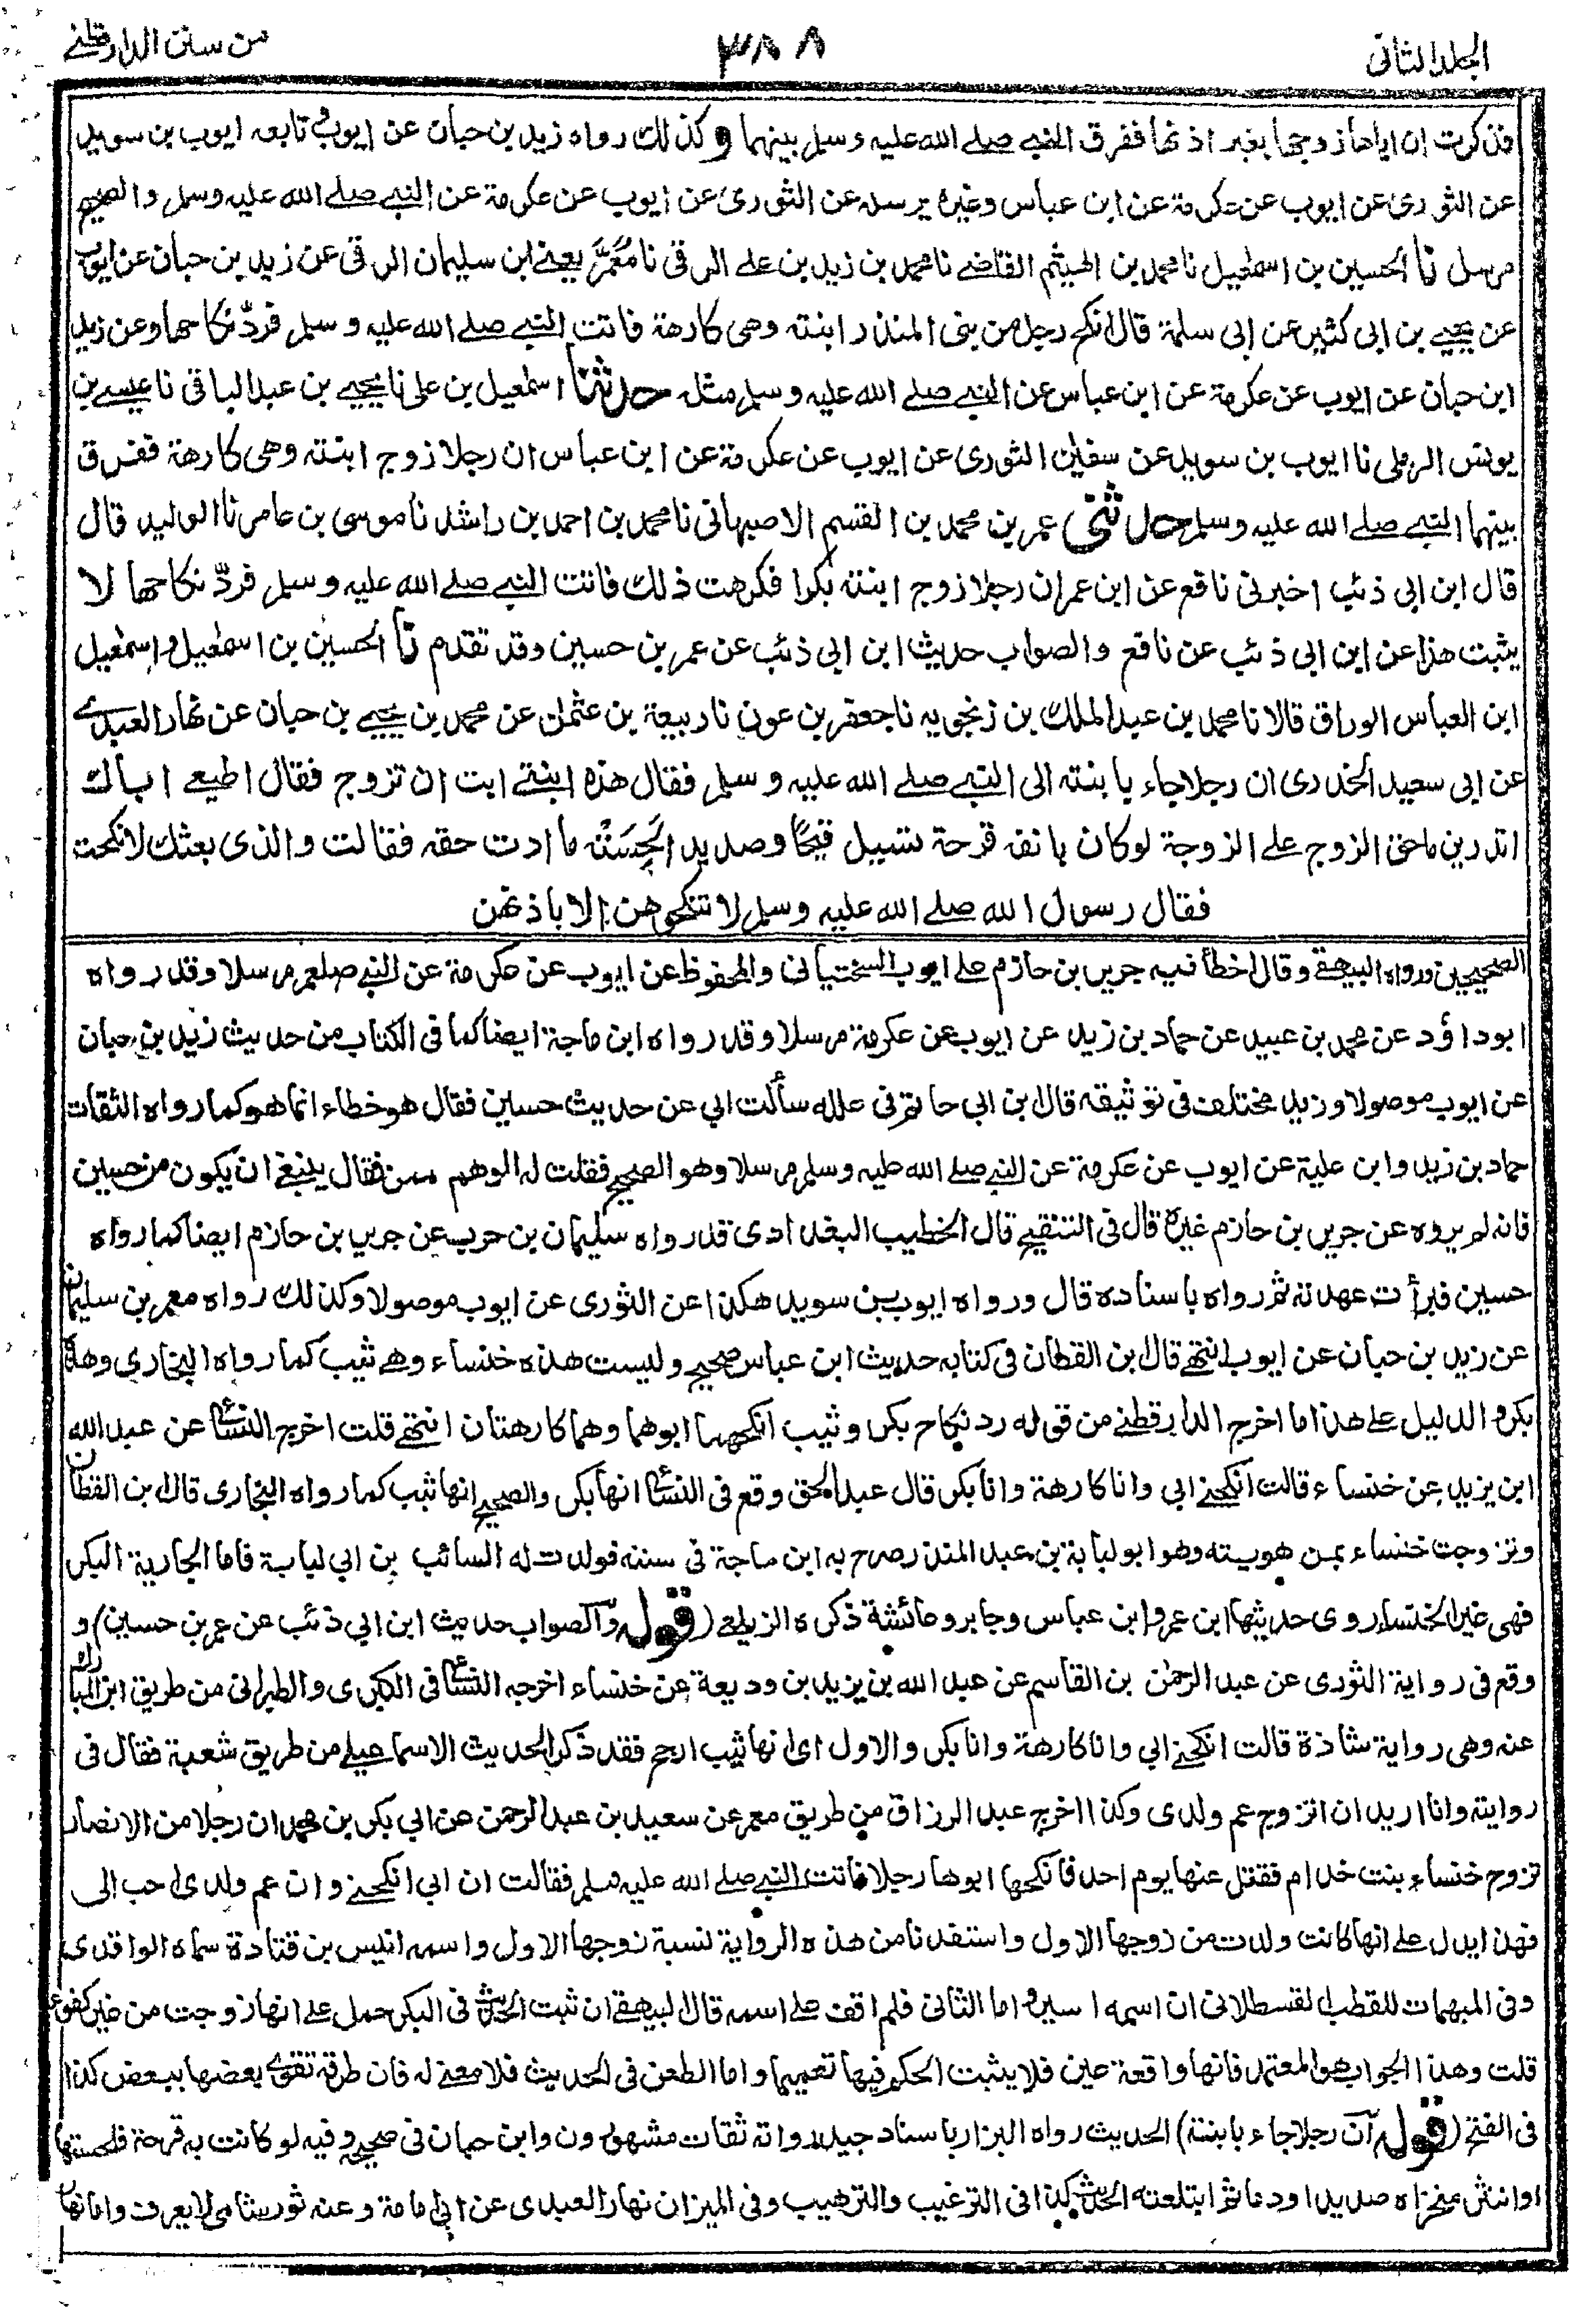 الجلد الثانى
٣٨٨
من سنن الدارقطنے
فذكرت ان اباها زوجها بغير اذنها ففرق النبے صلے الله عليه وسلم بينهما وكذلك رواه زيد بن حبان عن ايوب و تابعه ايوب بن سويد
عن الثورى عن ايوب عن عكرمة عن ابن عباس وغيره يرسله عن الثورى عن ايوب عن عكرمة عن النبے صلے الله عليه وسلم والصحيح
مرسل نا الحسين بن اسمعيل نا محمد بن الهيثم القاضے نا محمد بن زيد بن علے الرقى نا مُعَمَّر يعنے ابن سليمان الرقى عن زيد بن حبان عن ايوب
عن يحيے بن ابى كثير عن ابى سلمة قال انكح رجل من بنى المنذر ابنته وهى كارهة فاتت النبے صلے الله عليه وسلم فردّ نكاحها وعن زيد
ابن حبان عن ايوب عن عكرمة عن ابن عباس عن النبے صلے الله عليه وسلم مثله حدثنا اسمعيل بن على نا يحيے بن عبد الباقى نا عيسے بن
يونس الرملى نا ايوب بن سويد عن سفين الثورى عن ايوب عن عكرمة عن ابن عباس ان رجلا زوج ابنته وهى كارهة ففرق
بينهما النبے صلے الله عليه وسلم حدثنى عمر بن محمد بن القسم الاصبهانى نا محمد بن احمد بن راشد نا موسى بن عامر نا الوليد قال
قال ابن ابى ذئب اخبرنى نافع عن ابن عمر ان رجلا زوج ابنته بكرا فكرهت ذلك فاتت النبے صلے الله عليه وسلم فردّ نكاحها لا
يثبت هذا عن ابن ابى ذئب عن نافع والصواب حديث ابن ابى ذئب عن عمر بن حسين وقد تقدم نا الحسين بن اسمعيل و اسمعيل
ابن العباس الوراق قالا نا محمد بن عبد الملك بن زنجويه نا جعفر بن عون نا ربيعة بن عثمن عن محمد بن يحيے بن حبان عن نهار العبدے
عن ابى سعيد الخدرى ان رجلا جاء يابنته الى النبے صلے الله عليه وسلم فقال هذه ابنتے ابت ان تزوج فقال اطيعے اباك
اتدرين ما حق الزوج علے الزوجة لو كان بانفه قرحة تسيل قيحًا وصديدا لَحِسَتْه ما ادت حقه فقالت والذى بعثك لا نكحت
فقال رسول الله صلے الله عليه وسلم لا تنكحوهن الا باذنهن
الصحيحين ورواه البيهقے وقال اخطأ فيه جرير بن حازم علے ايوب السختيانى والمحفوظ عن ايوب عن عكرمة عن النبے صلعم مرسلا وقد رواه
ابوداؤد عن محمد بن عبيد عن حماد بن زيد عن ايوب عن عكرمة مرسلا وقد رواه ابن ماجة ايضا كما فى الكتاب من حديث زيد بن حبان
عن ايوب موصولا وزيد مختلف فى توثيقه قال ابن ابى حاتم فى علله سألت ابي عن حديث حسين فقال هو خطاء انما هو كما رواه الثقات
حماد بن زيد وابن علية عن ايوب عن عكرمة عن النبے صلے الله عليه وسلم مرسلا وهو الصحيح فقلت له الوهم ممن فقال ينبغے ان يكون من حسين
فانه لم يروه عن جرير بن حازم غيره قال فى التنقيح قال الخطيب البغدادى قد رواه سليمان بن حرب عن جرير بن حازم ايضا كما رواه
حسين فبرأت عهدته ثم رواه باسناده قال ورواه ايوب بن سويد هكذا عن الثورى عن ايوب موصولا وكذلك رواه معمر بن سليمان
عن زيد بن حبان عن ايوب انتهے قال ابن القطان فى كتابه حديث ابن عباس صحيح وليست هذه خنساء وهے ثيب كما رواه البخارى وهذه
بكر والدليل علے هذا ما اخرج الدارقطنے من قوله رد نكاح بكر وثيب انكحهما ابوهما وهما كارهتان انتهے قلت اخرج النسائے عن عبد الله
ابن يزيد عن خنساء قالت انكحنے ابى وانا كارهة وانا بكر قال عبد الحق وقع فى النسائے انها بكر والصحيح انها ثيب كما رواه البخارى قال ابن القطان
وتزوجت خنساء بمن هويته وهو ابو لبابة بن عبد المنذر صرح به ابن ماجة فى سننه فولدت له السائب بن ابى لبابة فاما الجارية البكر
فهى غير الخنساء روى حديثها ابن عمر وابن عباس وجابر وعائشة ذكره الزيلعے (قوله والصواب حديث ابن ابى ذئب عن عمر بن حسين) و
وقع فى رواية الثورى عن عبد الرحمن بن القاسم عن عبد الله بن يزيد بن وديعة عن خنساء اخرجه النسائے فى الكبرى والطبرانى من طريق ابن المبارك
عنه وهى رواية شاذة قالت انكحنے ابى وانا كارهة وانا بكر والاول اى انها ثيب ارجح فقد ذكر الحديث الاسماعيلے من طريق شعبة فقال فى
روايته وانا اريد ان اتزوج عم ولدى وكذا اخرج عبد الرزاق من طريق معمر عن سعيد بن عبد الرحمن عن ابى بكر بن محمد ان رجلا من الانصار
تزوج خنساء بنت خدام فقتل عنها يوم احد فانكحها ابوها رجلا فاتت النبے صلے الله عليه وسلم فقالت ان ابي انكحنے وان عم ولدى احب الى
فهذا يدل علے انها كانت ولدت من زوجها الاول واستفدنا من هذه الرواية نسبة زوجها الاول واسمه انيس بن قتادة سماه الواقدى
وفى المبهمات للقطب القسطلانى ان اسمه اسير واما الثانى فلم اقف علے اسمه قال البيهقے ان ثبت الحديث فى البكر حمل علے انها زوجت من غير كفوء
قلت وهذا الجواب هو المعتمد فانها واقعة عين فلا يثبت الحكم فيها تعميما واما الطعن فى الحديث فلا معنے له فان طرقه تقوے بعضها ببعض كذا
فى الفتح (قوله ان رجلا جاء بابنته) الحديث رواه البزار باسناد جيد رواته ثقات مشهورون وابن حبان فى صحيحه وفيه لو كانت به قرحة فلحستها
او انتثر منخراه صديدا ودما ثم ابتلعته الحديث كذا فى الترغيب والترهيب وفى الميزان نهار العبدى عن ابى امامة وعنه ثور شامى لا يعرف واما نهار